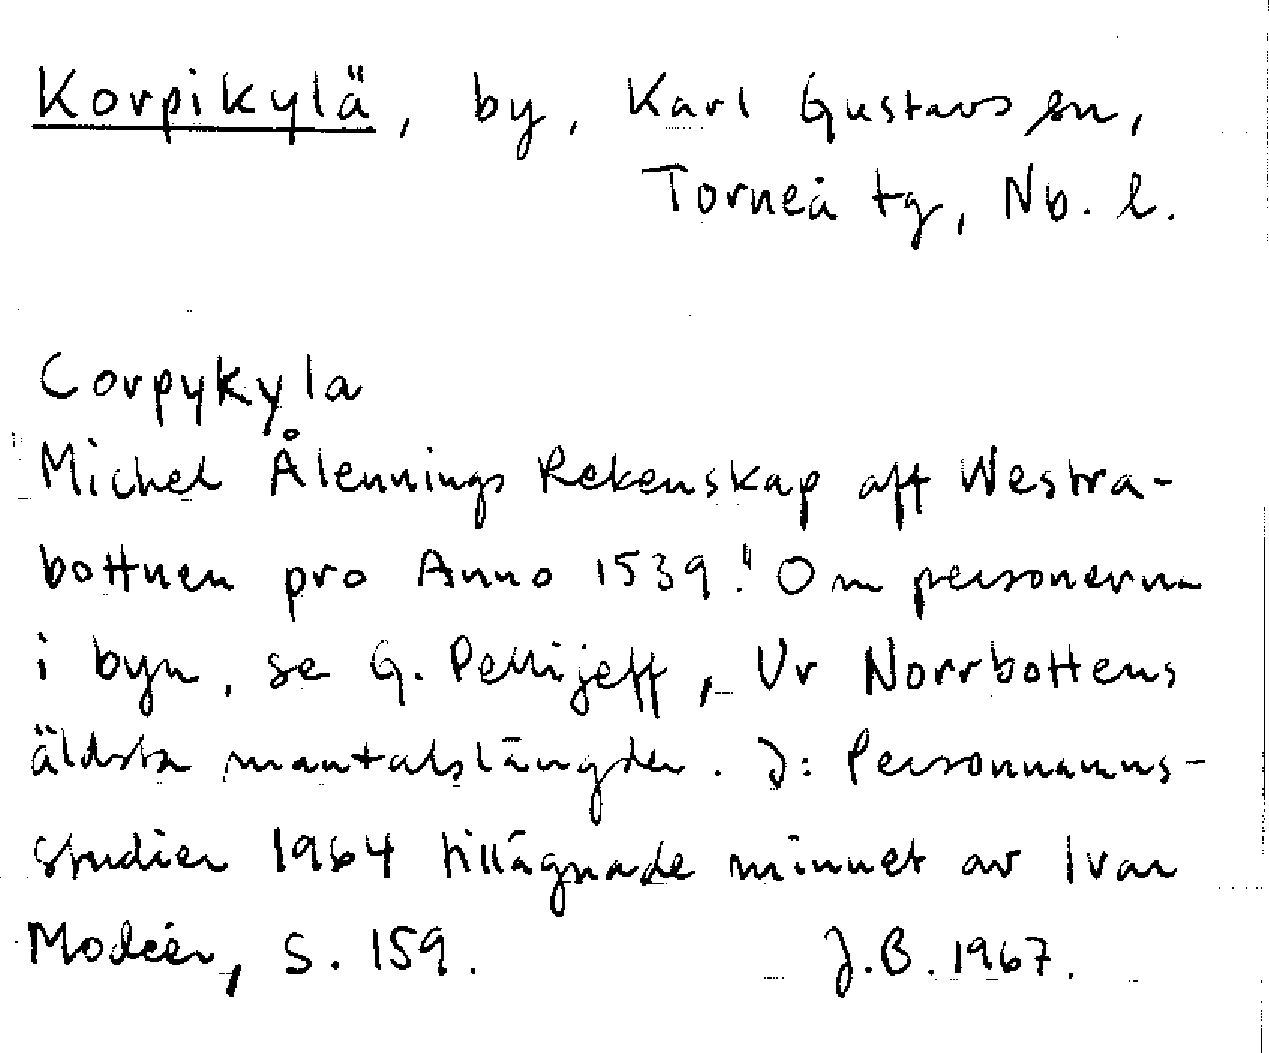 Korpikylä, by, Karl Gustavs sn,
Torneå tg, Nb. l.
Corpykyla
Michel Ålennings Rekenskap aff Westra-
bottnen pro Anno 1539." Om personerna
i byn, se G. Pellijeff, Ur Norrbottens
äldsta mantalslängder. I: Personnamns-
studier 1964 tillägnade minnet av Ivar
Modéer, S. 159. J.B. 1967.